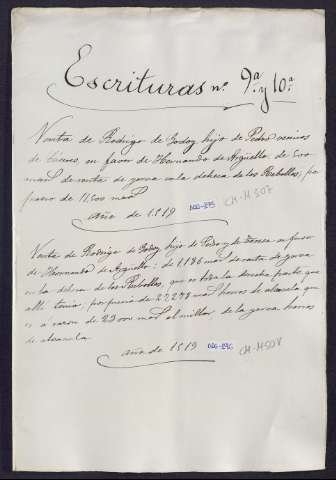 Escrituras nº 9ª y 10ª
Venta de Rodrigo de Godoy hijo de Pedro vecino
de Cáceres, en favor de Hernando de Argüello de 500
mars de renta de yerva en la dehesa de los Arbollos, por
precio de 11,500 mars
año de 1519 CM-H 507
Venta de Rodrigo de Godoy hijo de Pedro y de Teresa en favor
de Hernando de Argüello, de 1,186 mars de renta de yerva
en la dehesa de los Arbollos, que es toda la derecha parte que
allí tenia, por precio de 27,278 mars horros de alcavala que
es á razon de 23 000 mars el millar de la yerva horros
de alcavala.
año de 1519 CM-H 508